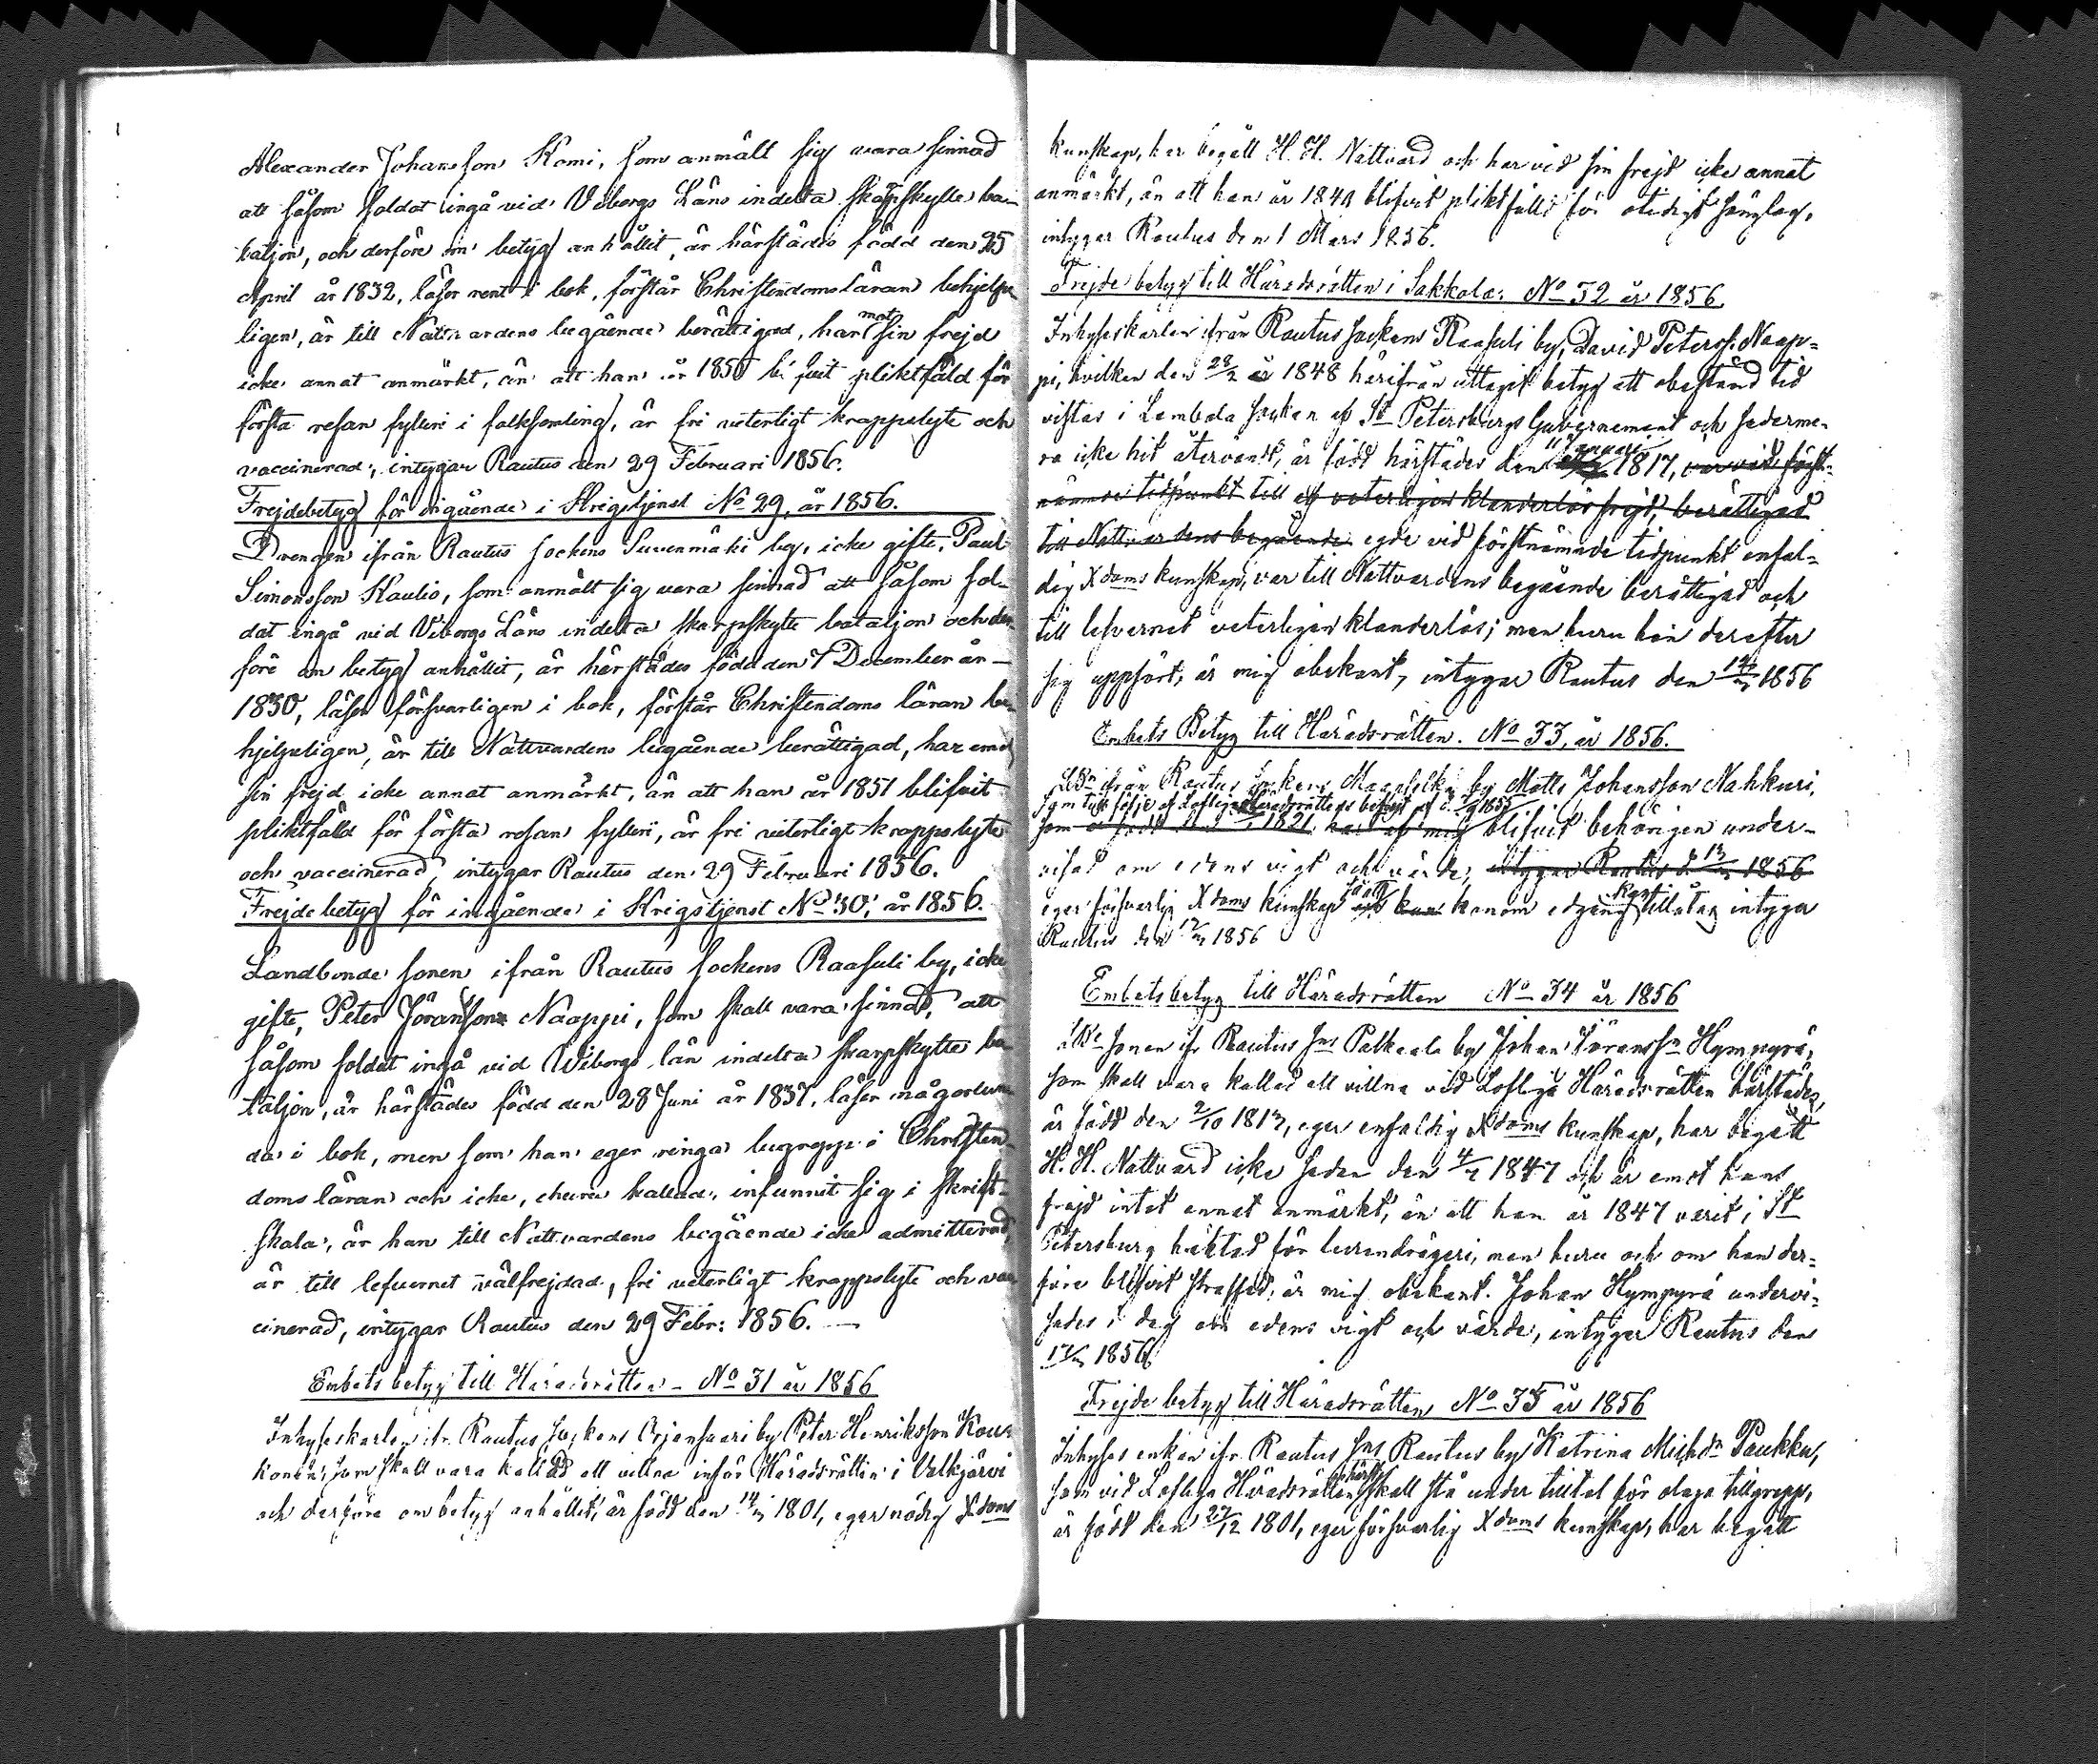 Alexander Johansson Komi, som anmält sig vara sinnad
att såsom soldat ingå vid Viborgs Läns indelta skarpskytte ba-
taljon, och derföre om betyg anhållit, är härstädes född den 25
April år 1832, läser rent i bok, förstår Christendomsläran behjelpe-
ligen, är till Nattvardens begående berättigad, har mot sin frejd
icke annat anmärkt, än att han år 1850 blifvit pliktfäld för
första resan fylleri i folksamling, är fri veterligt kroppslyte och
vaccinerad, intygar Rautus den 29 Februari 1856.
Frejdebetyg för ingående i Krigstjenst No 29, år 1856.
Drengen ifrån Rautus Sockens Suvenmäki by, icke gifte, Paul
Simonsson Kaulio, som anmält sig vara sinnad att såsom sol-
dat ingå vid Viborgs Läns indelta skarpskytte bataljon och der-
före om betyg anhållit, är härstädes född den 7 December år
1830, läser försvarligen i bok, förstår Christendoms läran be-
hjelpeligen, är till Nattvardens begående berättigad, har emot
sin frejd icke annat anmärkt, än att han år 1851 blifvit
pliktfälld för första resan fylleri, är fri veterligt kroppslyte
och vaccinerad, intygar Rautus den 29 Februari 1856.
Frejdebetyg för ingående i Krigstjenst No 30, år 1856.
Landbonde sonen ifrån Rautus sockens Raasuli by, icke
gifte, Peter Göransson Naappi, som skall vara sinnad, att
såsom soldat ingå vid Wiborgs län indelta skarpskytte ba-
taljon, är härstädes född den 28 Juni år 1837, läser någorlun-
da i bok, men som han eger ringa begrepp i Christen-
doms läran och icke, ehuru kallad, infunnit sig i skrift-
skola, är han till Nattvardens begående icke admitterad,
är till lefvernet välfrejdad, fri veterligt kroppslyte och vac-
cinerad, intygar Rautus den 29 Febr: 1856. —
Embets betyg till Häradsrätten - No 31 år 1856
Inhyseskarlen ifr. Rautus Sockens Orjansaari by Peter Henriksson Kou-
konen, som skall vara kallad att vittna inför Häradsrätten i Valkjärvi
och derföre om betyg anhållit, är född den 1801, eger nödig Xdoms
kunskap, har begått H. H. Nattvard och har vid sin frejd icke annat
anmärkt, än att han år 1841 blifvit pliktfälld för otidigt sänglag,
intygar Rautus den 1 Mars 1856.
Frejde betyg till Häradsrätten i Sakkola: No 32 år 1856.
Inhyseskarlen ifrån Rautus sockens Raasuli by, David Peterss. Naap-
pi, hvilken den 28/2 år 1848 härifrån uttagit betyg att obestämd tid
vistas i Lembala socken af St Petersburgs Guvernement och sederme-
ra icke hit återvändt, är född härstädes den 11 Januari 1817, var vid först-
nämnde tidpunkt till veterligen klanderlös frejd, berättigad
till Nattvardens begående egde vid förstnämnde tidpunkt enfal-
dig Xdoms kunskap, var till Nattvardens begående berättigad och
till lefvernet veterligen klanderlös; men huru han derefter
sig uppfört, är mig obekant, intygar Rautus den 1856
Embets Betyg till Häradsrätten. No 33, år 1856.
ifrån Rautus Sockens by Matts Johansson Nahkuri,
som till följe af Lofliga Häradsrättens beslut af d. 1855
som 1821, har af mig blifvit behörigen under-
visad om edens vigt och värde, intygar Rautus d. 1856
eger försvarlig Xdoms kunskap samt kan honom edgång tillåtas intygar
Rautus den 1856
Embetsbetyg till Häradsrätten No 34 år 1856
sonen ifr Rautus Sns Palkeala by Johan Göransson Hymppyrä,
som skall vara kallad att vittna vid Lofliga Häradsrätten härstädes,
är född den 2/10 1813, eger enfaldig Xdoms kunskap, har begått
H. H. Nattvard icke sedan den 1847 och är emot hans
frejd intet annat anmärkt, än att han år 1847 varit i St
Petersburg häktad för lurendrägeri, men huru och om han der-
före blifvit straffad, är mig obekant. Johan Hymppyrä undervi-
sades i dag om edens vigt och värde, intygar Rautus den
1856
Frejde betyg till Häradsrätten No 35 år 1856
Inhyses enkan ifr. Rautus Sns Rautus by Katrina Michsdr Paukku,
som vid Lofliga Häradsrätten härst. skall stå under tilltal för olaga tillgrepp,
är född den 27/12 1801, eger försvarlig Xdoms kunskap, har begått